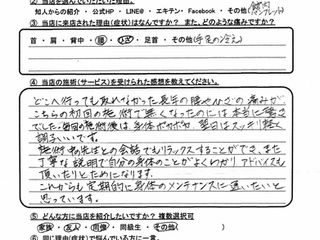 ② 当店を選んでいただいた理由。
知人からの紹介 ・ 公式HP ・ LINE@ ・ エキテン ・ Facebook ・ その他(
③ 当店に来店された理由(症状)はなんですか? また、どのような痛みですか?
首 ・ 肩 ・ 背中 ・ 腰 ・ ひざ ・ 足首 ・ その他(手足の冷え)
④ 当店の施術(サービス)を受けられた感想を教えてください。
どこへ行っても良くならなかった長年の腰やひざの痛みが、
こちらの初回の施術で無くなったのには本当に驚き
でした。毎回の施術後は、身体ポカポカ、翌日はスッキリ軽く
調子いいです。
施術も先生との会話でもリラックスすることができ、また
丁寧な説明で自分の身体のことがよくわかりアドバイスも
頂いたりとためになります。
これからも定期的に身体のメンテナンスに通いたいと
思っています。
⑤ どんな方に当店を紹介したいですか? 複数選択可
家族 ・ 友人 ・ 同僚 ・ 同級生 ・ その他(
⑥ 同じ理由(症状)で悩んでいる方に一言。